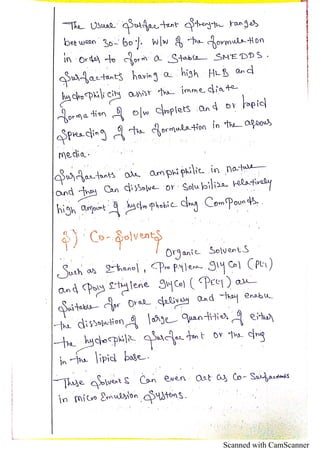 The Usual Surfactant Strength ranges
between 30-60% w/w of the formulation
in order to form a Stable SMEDDS.
Surfactants having a high HLB and
hydrophilicity assist the immediate
formation of o/w droplets and or rapid
Spreading of the formulation in the aqeous
media.
Surfactants are amphiphilic in nature
and they Can dissolve or Solubilize relatively
high amount of hydrophobic drug Compounds.
3) Co-Solvents
Organic Solvents
Such as Ethanol, Propylene glycol (PG)
and Poly Ethylene glycol (PEG) are
Suitable for oral delivery and they enable
the dissolution of large quantities of either
the hydrophilic Surfactant or the drug
in the lipid base.
These Solvents Can even act as Co-Surfactants
in micro Emulsion Systems.
Scanned with CamScanner